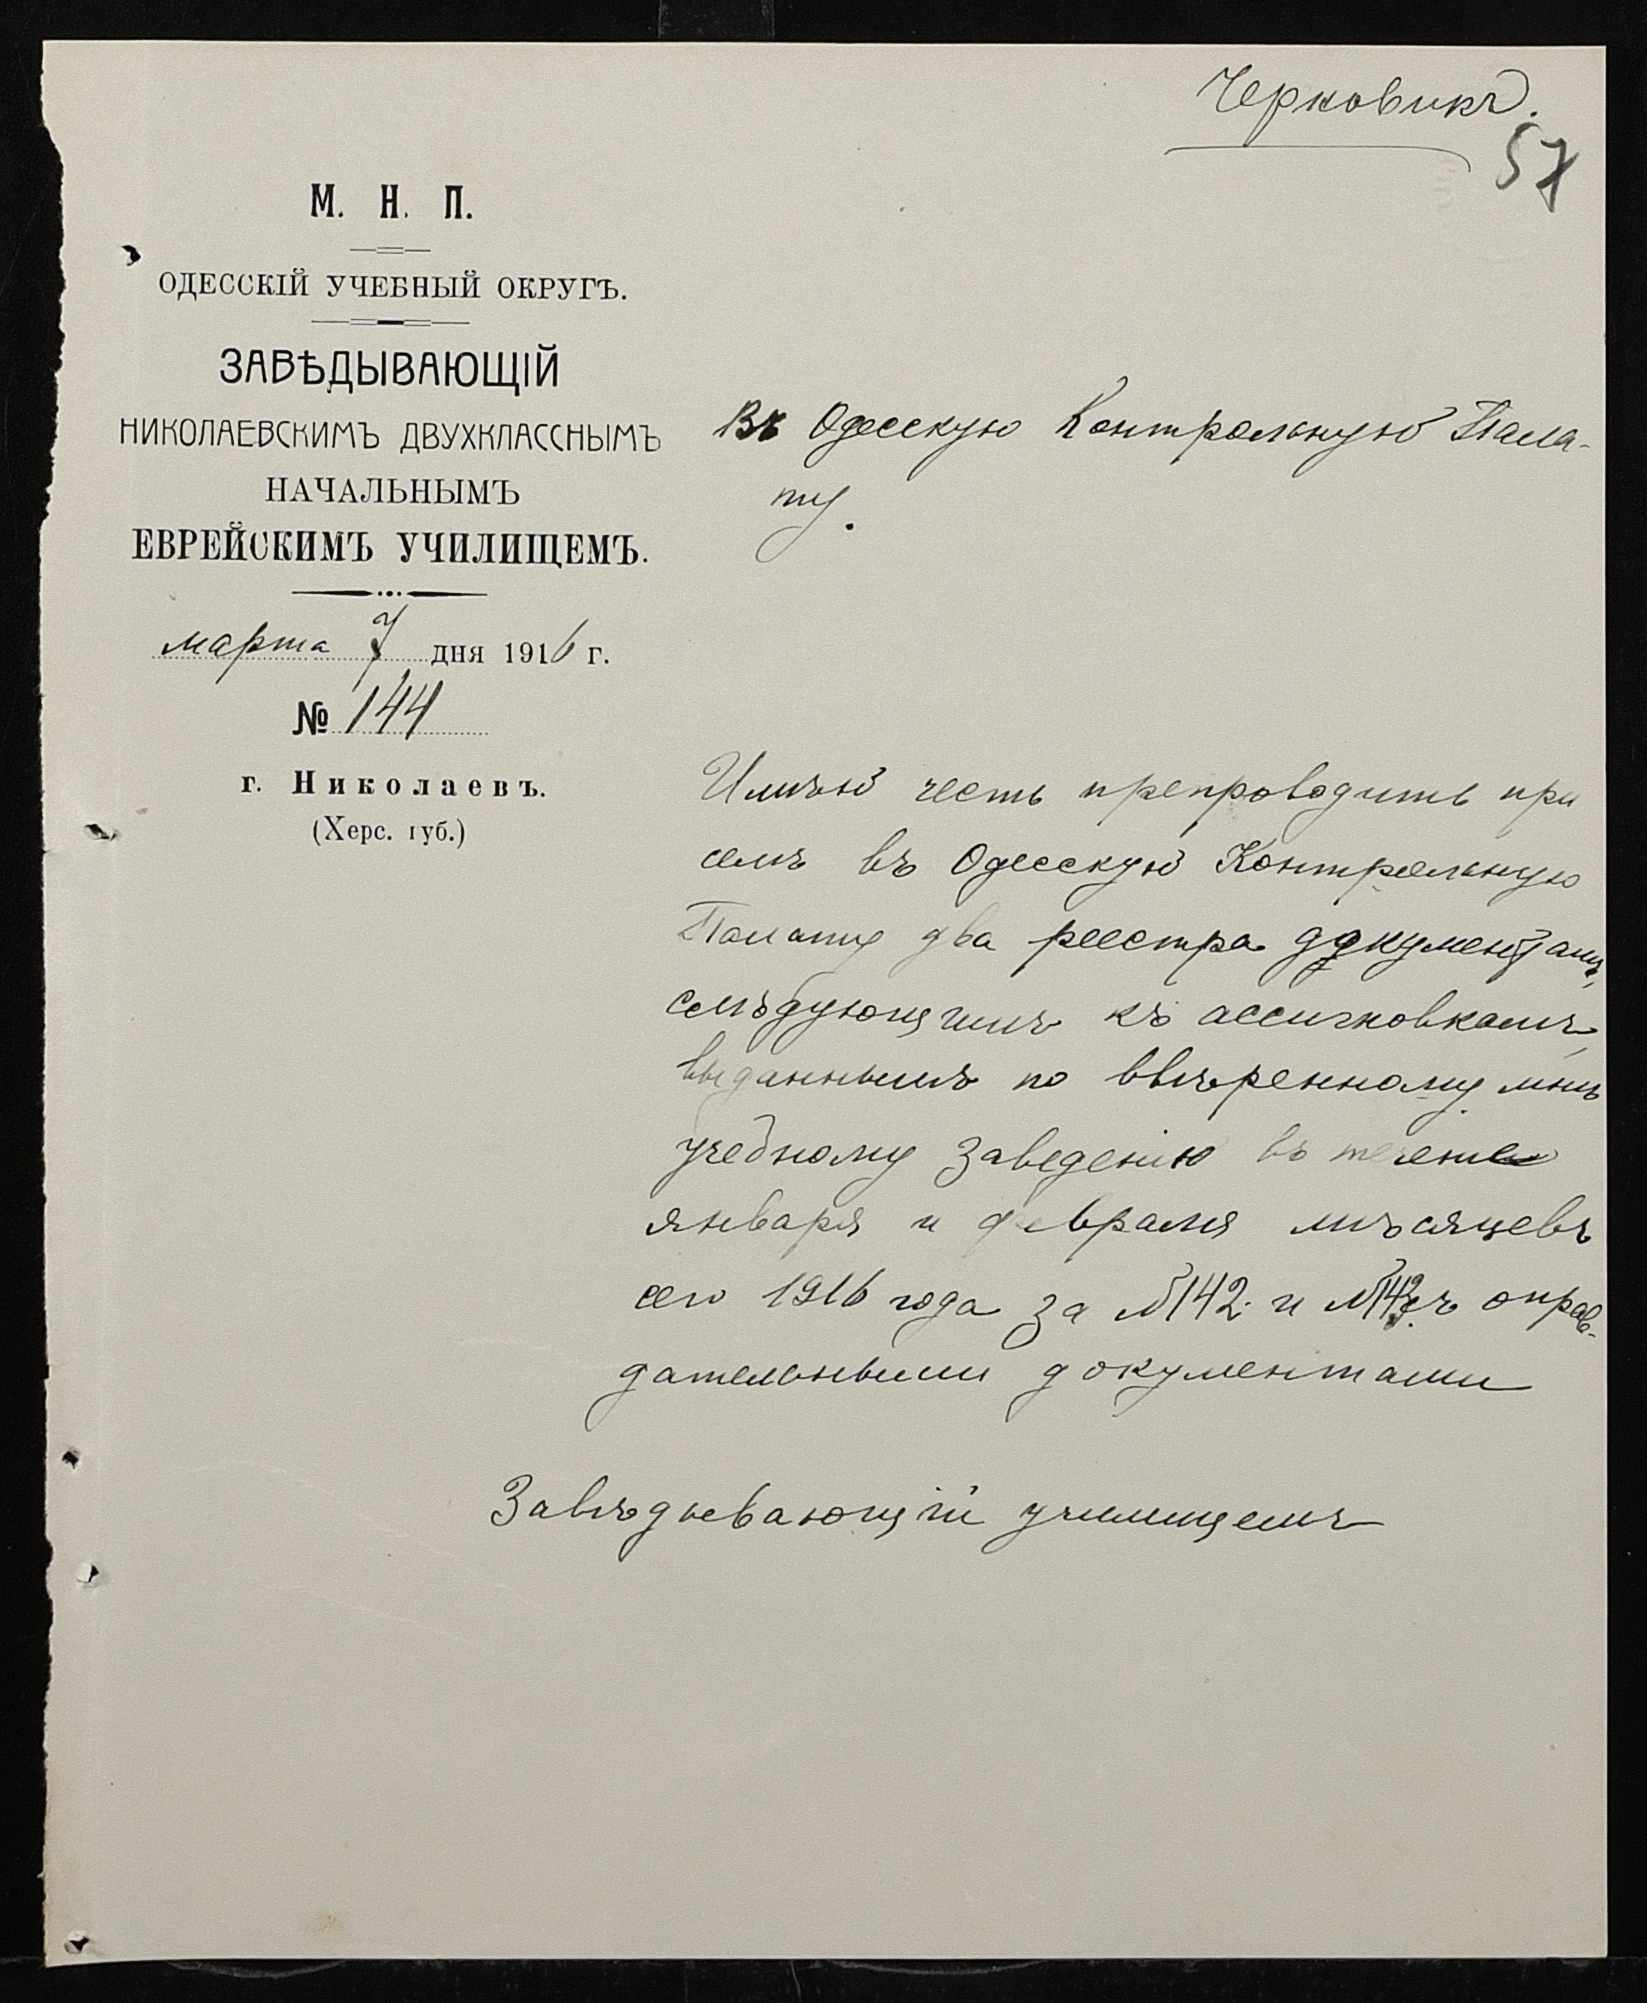 Черновикъ.
57
М. Н. П.
ОДЕССКІЙ УЧЕБНЫЙ ОКРУГЪ.
ЗАВѢДЫВАЮЩІЙ
НИКОЛАЕВСКИМЪ ДВУХКЛАССНЫМЪ
НАЧАЛЬНЫМЪ
ЕВРЕЙСКИМЪ УЧИЛИЩЕМЪ.
марта 7 дня 1916 г.
№ 144
г. Николаевъ.
(Херс. губ.)
Въ Одесскую Контрольную Пала-
ту.
Имѣю честь препроводить при
семъ въ Одесскую Контрольную
Палату два реестра документамъ,
слѣдующимъ къ ассигновкамъ,
выданнымъ по ввѣренному мнѣ
учебному заведенію въ
января и февраля мѣсяцевъ
сего 1916 года за №142 и №143 съ оправ-
дательными документами
Завѣдывающій училищемъ